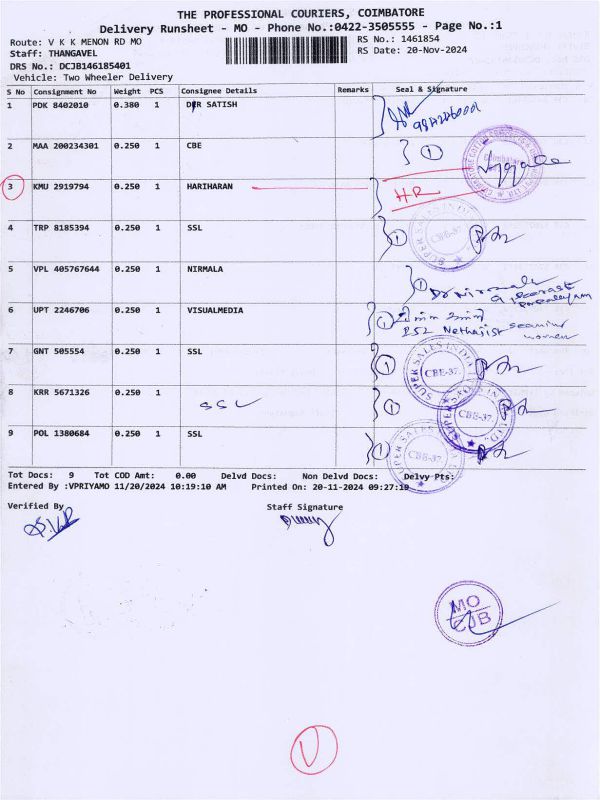 THE PROFESSIONAL COURIERS, COIMBATORE
Delivery Runsheet - MO - Phone No.:0422-3505555 - Page No.:1
Route: V K K MENON RD MO
RS No.: 1461854
Staff: THANGAVEL
RS Date: 20-Nov-2024
DRS No.: DCJB146185401
Vehicle: Two Wheeler Delivery
S No Consignment No Weight PCS Consignee Details Remarks Seal & Signature
1 PDK 8402010 0.380 1 DR SATISH
2 MAA 200234301 0.250 1 CBE 1
3 KMU 2919794 0.250 1 HARIHARAN HR
4 TRP 8185394 0.250 1 SSL 1
SUPER SALES INDIA CBE-37.
5 VPL 405767644 0.250 1 NIRMALA 1 Dr Nirmala
6 UPT 2246706 0.250 1 VISUALMEDIA 1
252 Nethajist
7 GNT 505554 0.250 1 SSL 1
SUPER SALES INDIA LTD. CBE-37.
8 KRR 5671326 0.250 1 SSL 1
SUPER SALES INDIA LTD. CBE-37.
9 POL 1380684 0.250 1 SSL 1
SUPER SALES CBE-37.
Tot Docs: 9 Tot COD Amt: 0.00 Delvd Docs: Non Delvd Docs: Delvy Pts:
Entered By :VPRIYAMO 11/20/2024 10:19:10 AM Printed On: 20-11-2024 09:27:19
Verified By
Staff Signature
MO
CJB